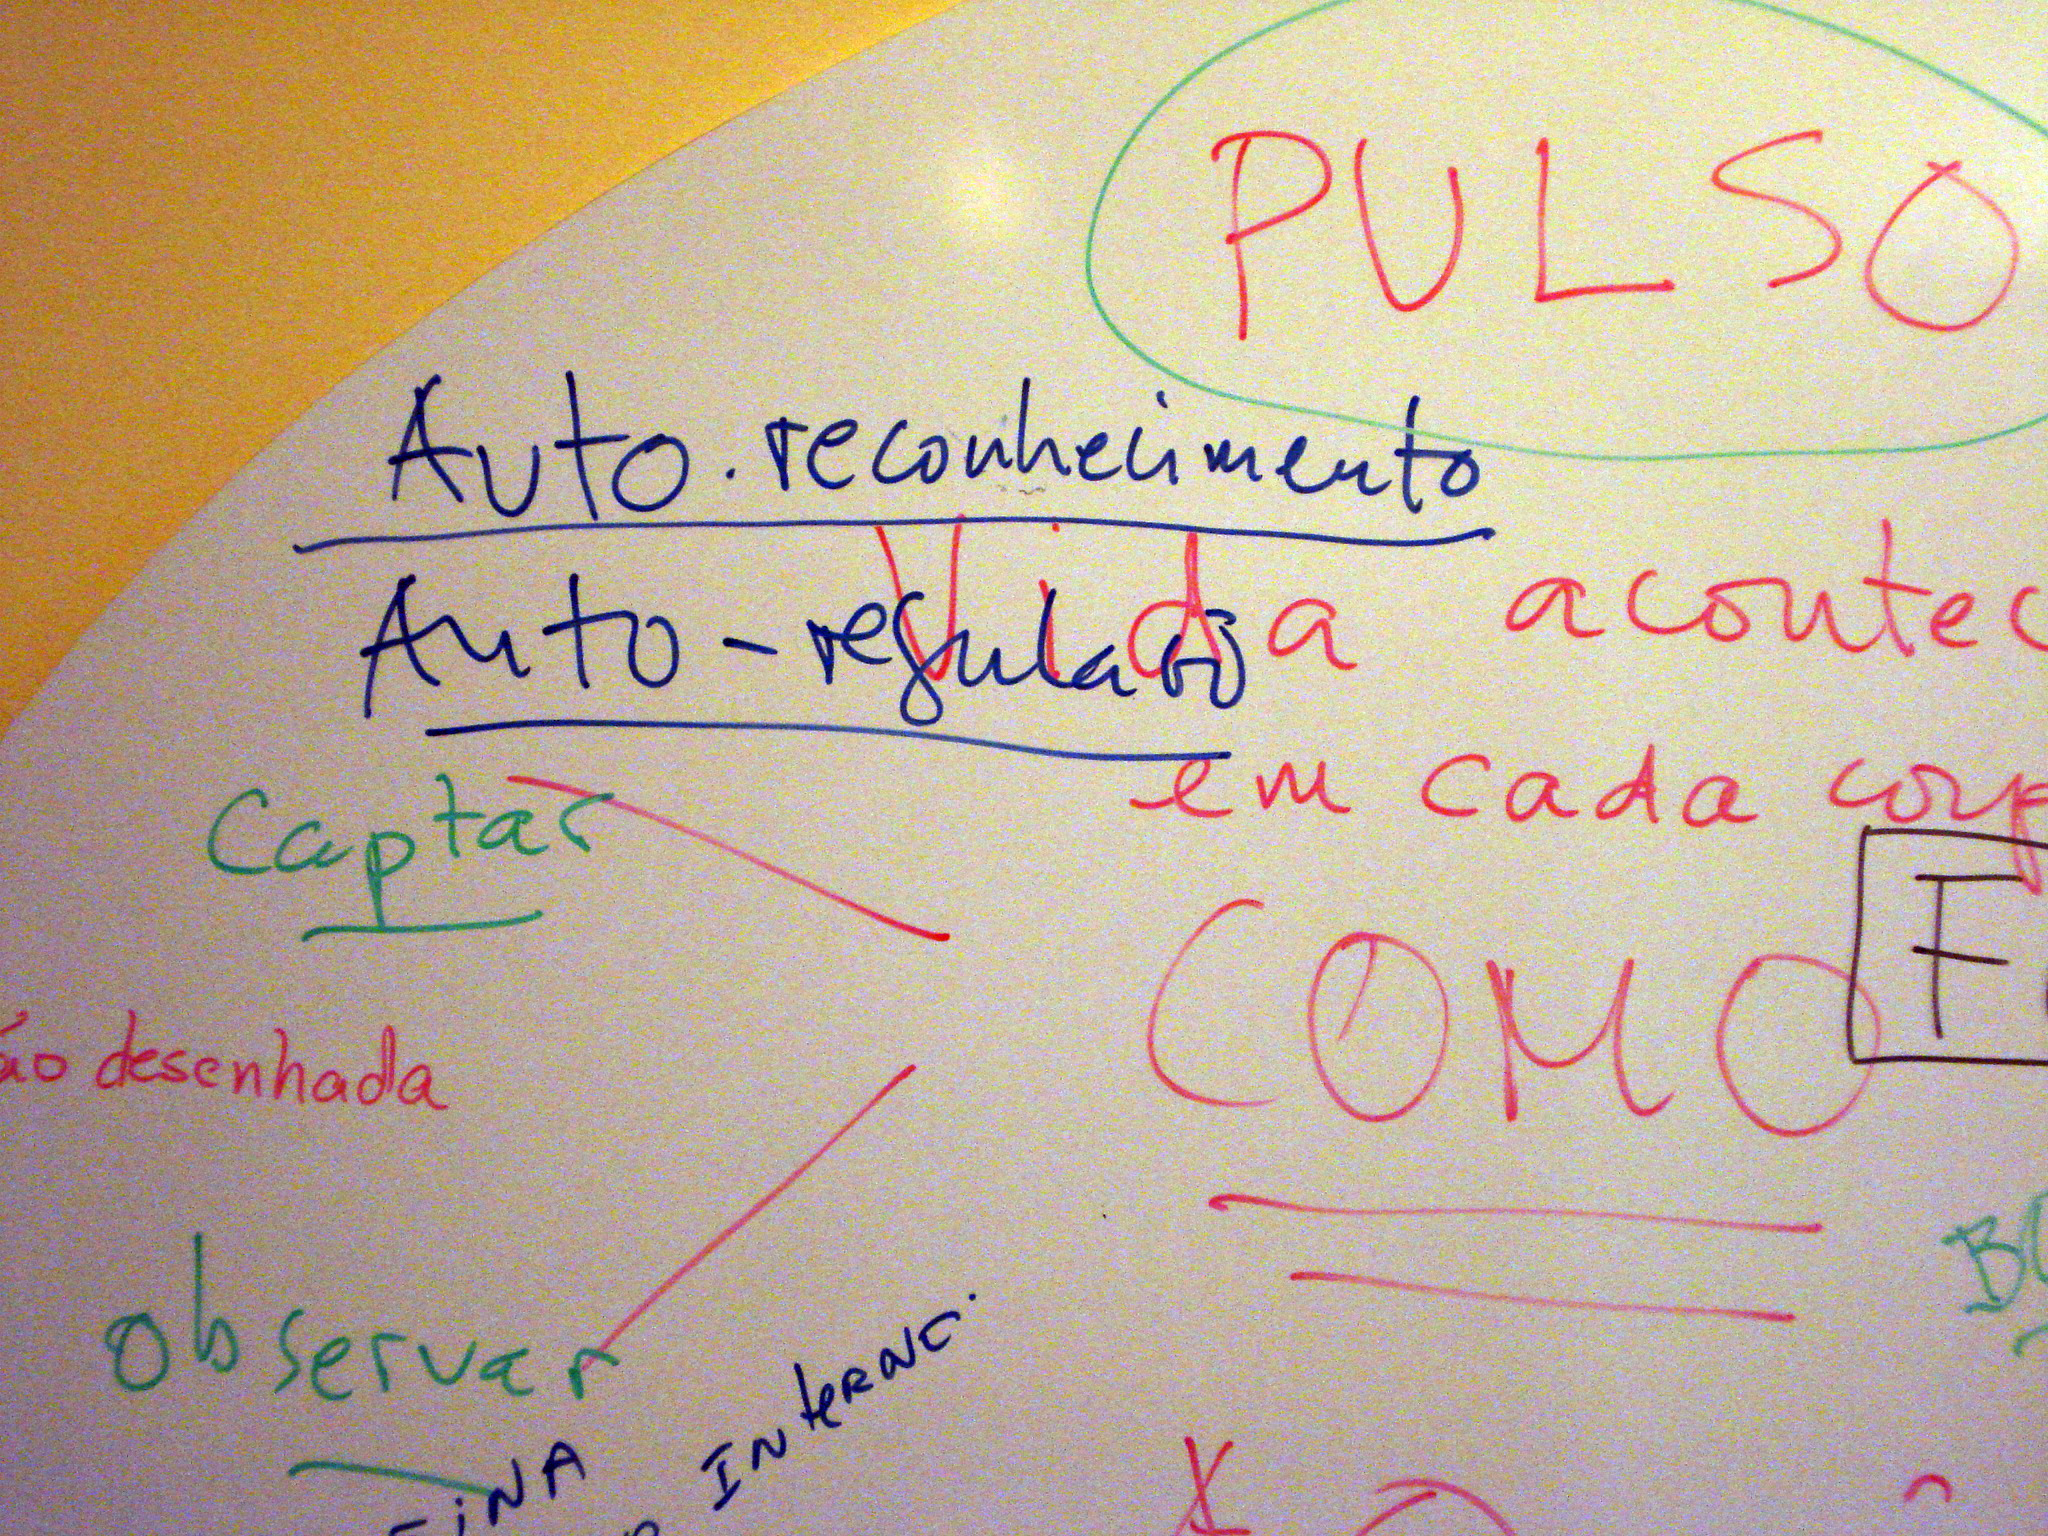 PULSO
Auto.reconhecimento
Vida acontec
Auto-regulaçõ
em cada corp
Captar
F
COMO
ão desenhada
BO
Observar
INterNC.
iNA